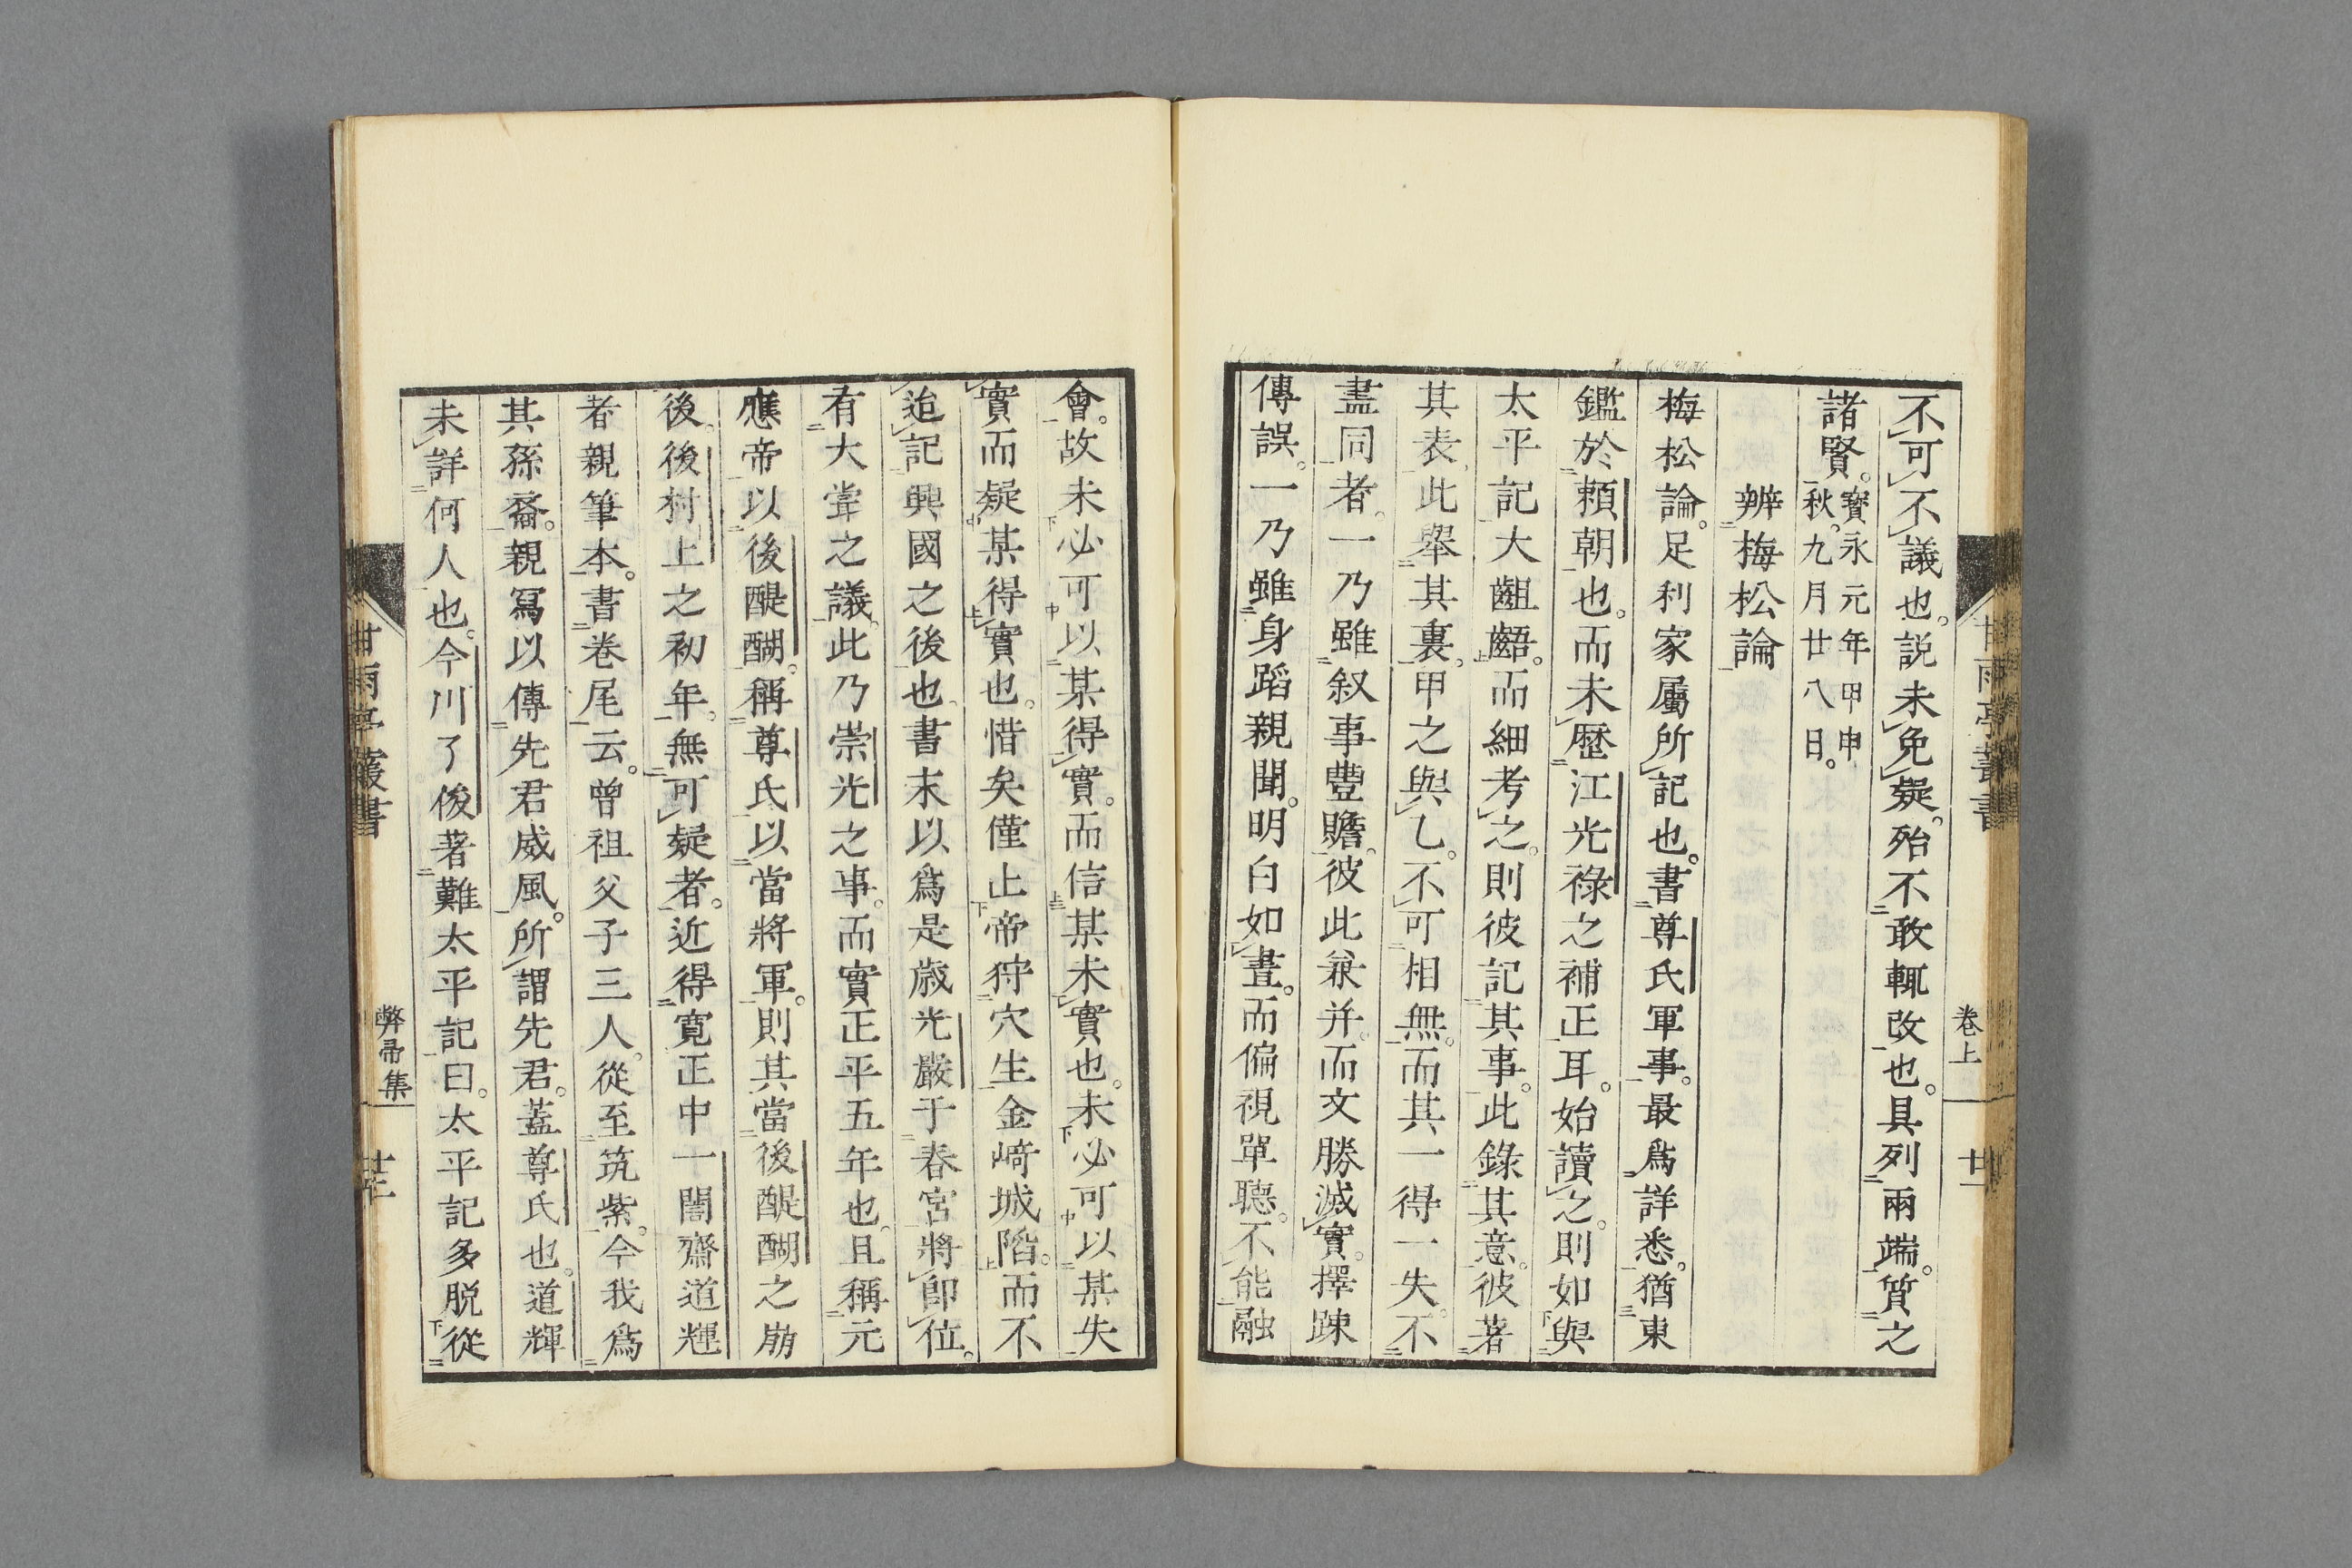 不可不議也。説未免疑。殆不敢輒改也。具列兩端。質之
諸賢。寶永元年甲申
秋。九月廿八日。
辨梅松論
梅松論。足利家屬所記也。書尊氏軍事。最爲詳悉。猶東
鑑於頼朝也。而未歴江光祿之補正耳。始讀之。則如與
太平記大齟齬。而細考之。則彼記其事。此錄其意。彼著
其表。此舉其裏。甲之與乙。不可相無。而其一得一失。不
盡同者。一乃雖叙事豐贍。彼此兼并。而文勝滅實。擇踈
傳誤。一乃雖身蹈親聞。明白如晝。而偏視單聽。不能融
卷上
廿一
會。故未必可以某得實。而信某未實也。未必可以某失
實而疑某得實也。惜矣僅止帝狩穴生金﨑城陷。而不
追記興國之後也。書末以爲是歲光嚴于春宮將卽位。
有大嘗之議。此乃崇光之事。而實正平五年也。且稱元
應帝以後醍醐。稱尊氏以當將軍。則其當後醍醐之崩
後。後村上之初年。無可疑者。近得寛正中一誾齋道輝
者親筆本。書卷尾云。曾祖父子三人。從至筑紫。今我爲
其孫裔。親冩以傳先君威風。所謂先君。蓋尊氏也。道輝
未詳何人也。今川了俊著難太平記曰。太平記多脱從
甘雨亭叢書
弊帚集